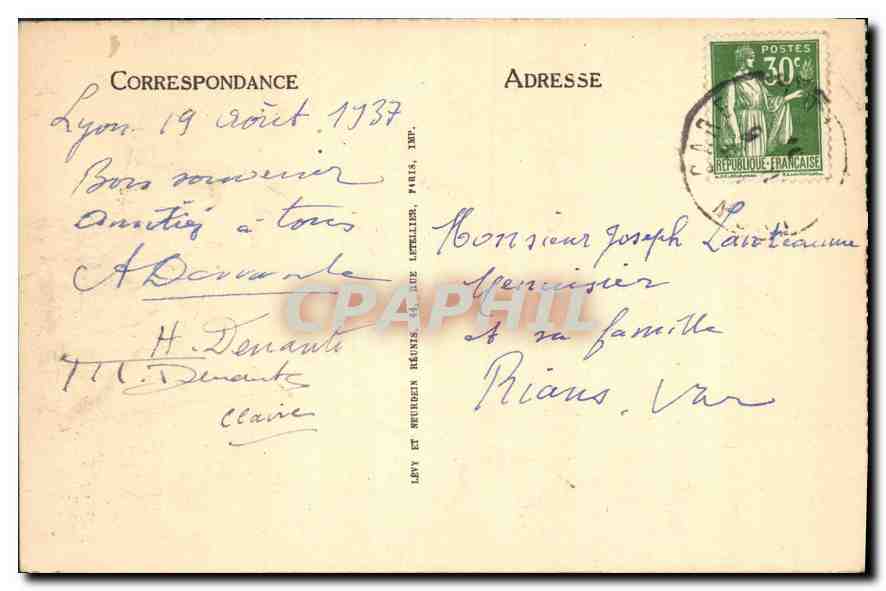 CORRESPONDANCE
Lyon 19 Août 1937
Bons souvenir
Amitiés à tous
A Denante
H. Denante
M. Denante
Claire
LÉVY ET NEURDEIN RÉUNIS, 44, RUE LETELLIER, PARIS, IMP.
ADRESSE
POSTES
30c
RÉPUBLIQUE-FRANÇAISE
GARE
Monsieur Joseph
Menuisier
et sa famille
Rians. Var
CPAPHIL